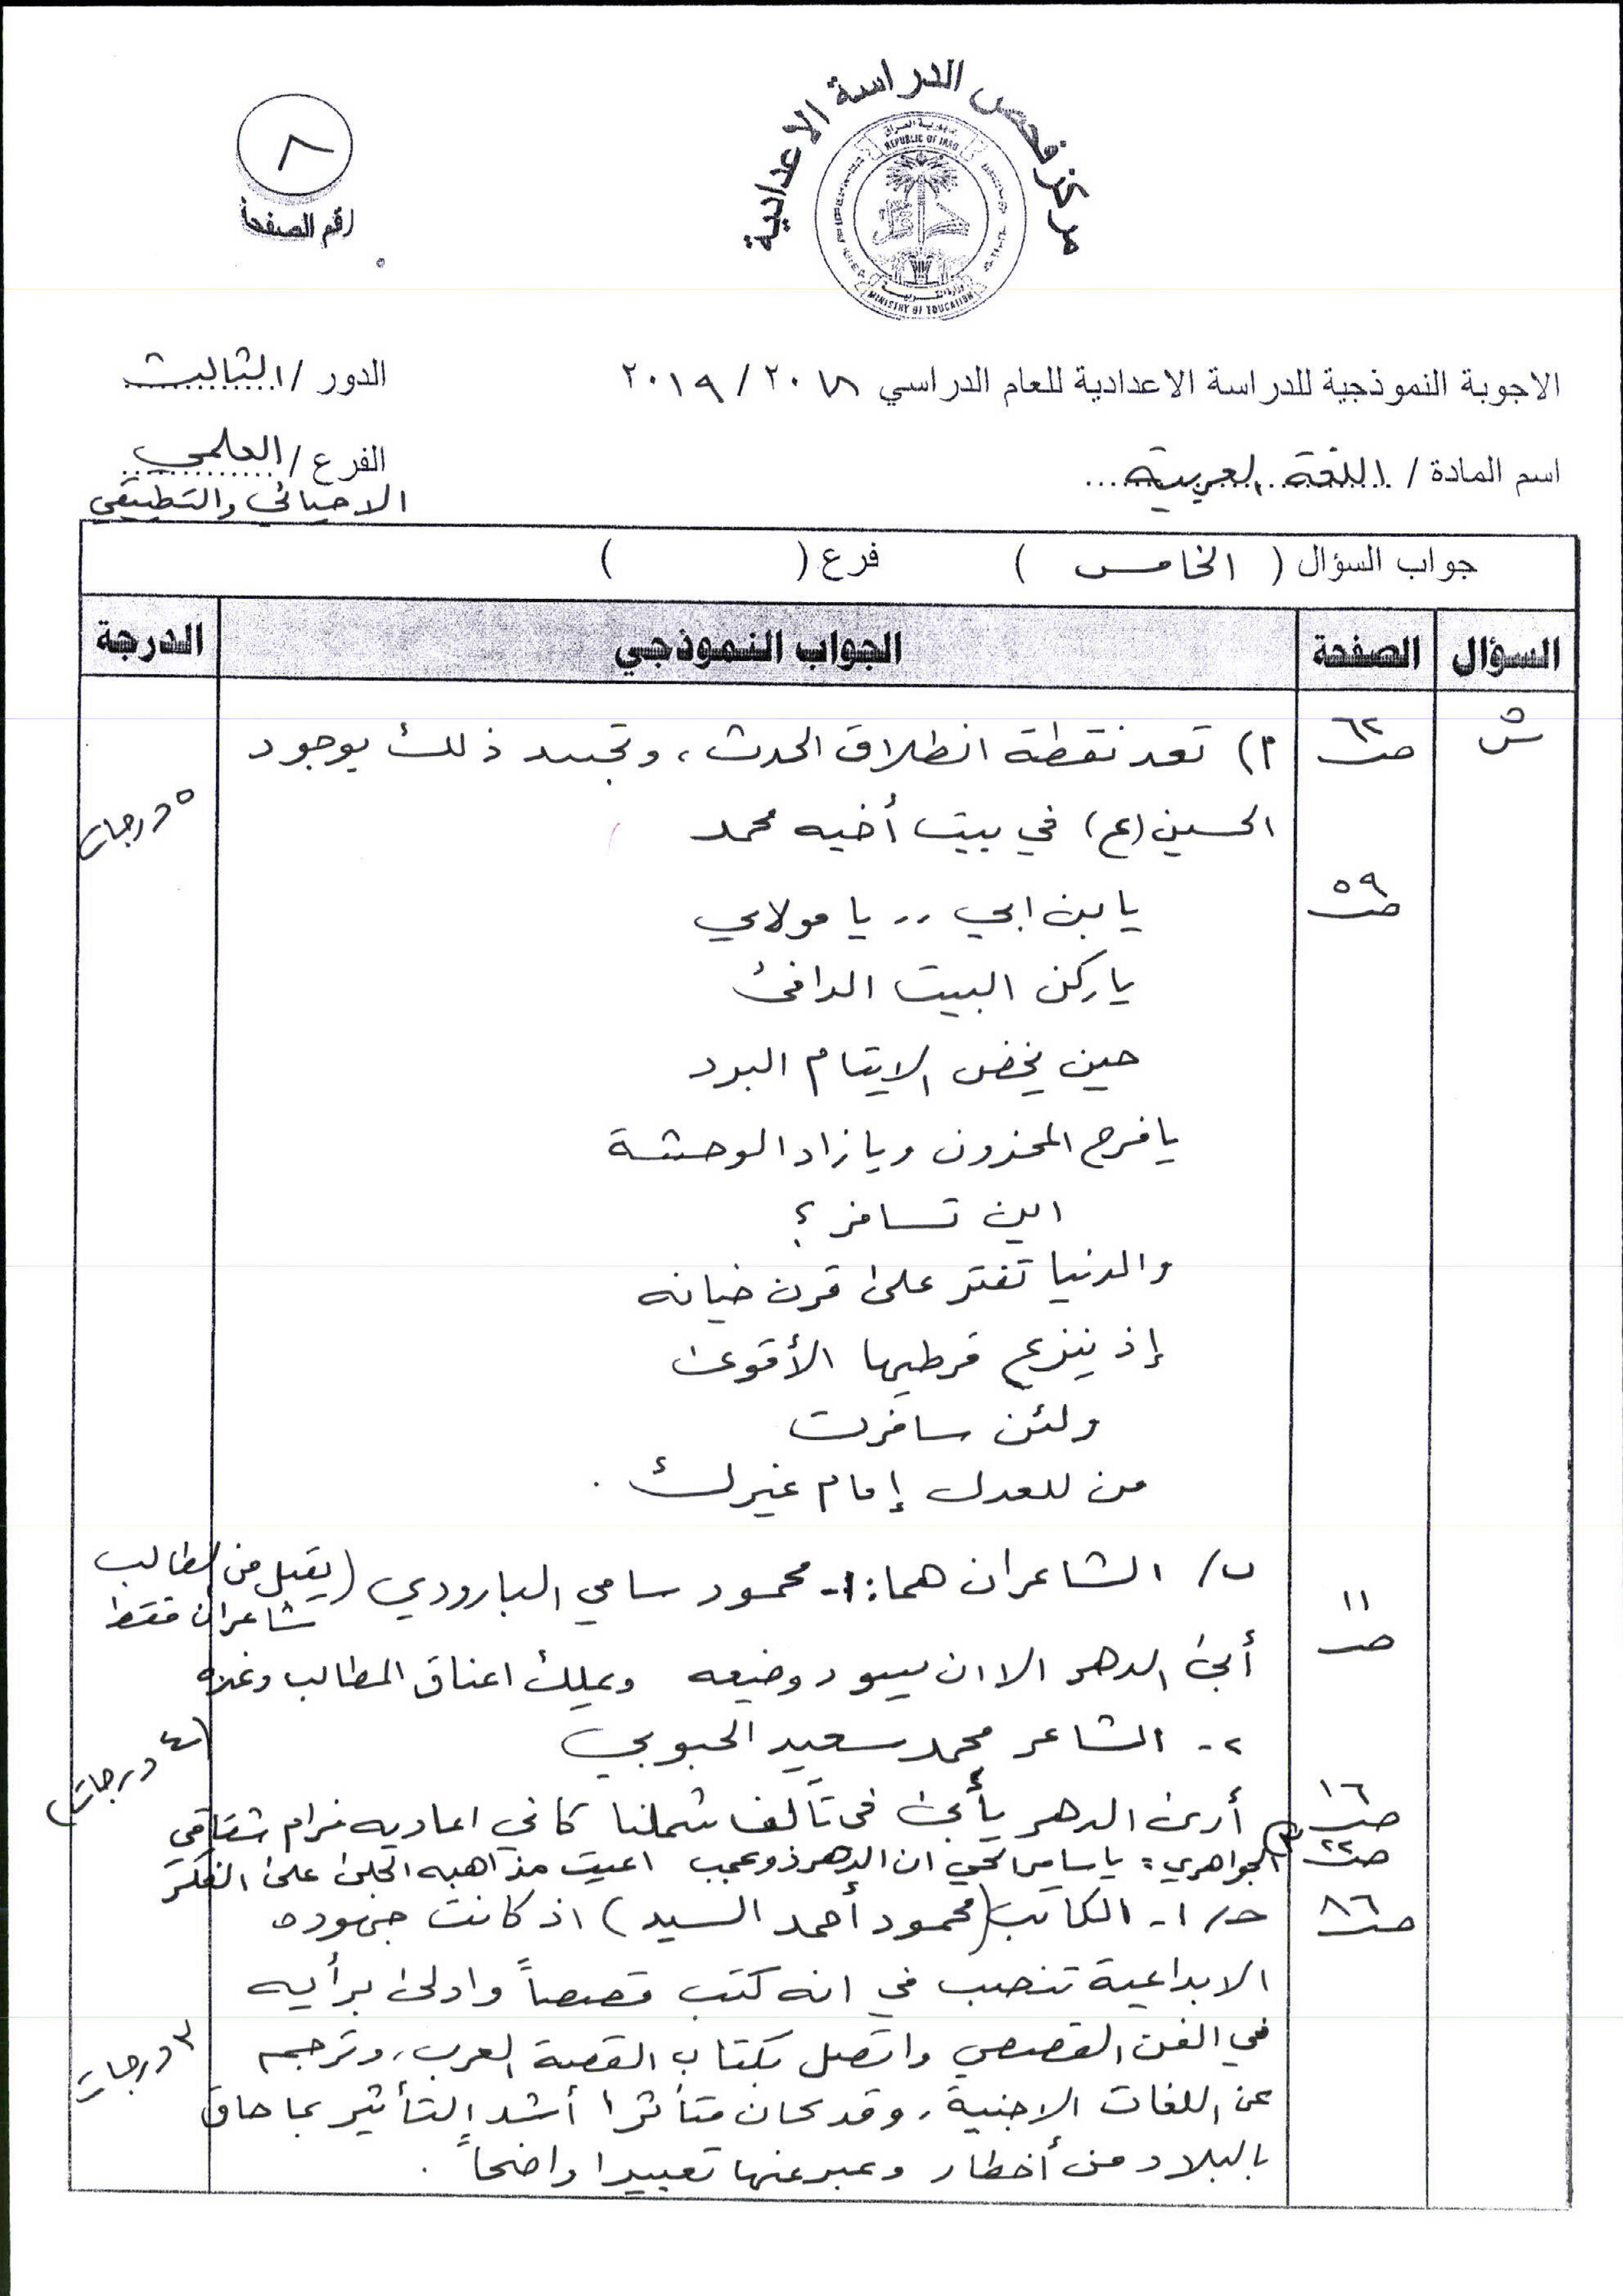 مركز فحص الدراسة الاعدادية
جمهورية العراق
REPUBLIC OF IRAQ
وزارة التربية
MINISTRY OF EDUCATION
٨
رقم الصفحة
الاجوبة النموذجية للدراسة الاعدادية للعام الدراسي ٢٠١٨ / ٢٠١٩
الدور / الثالث
اسم المادة / اللغة العربية
الفرع / العلمي
الاحيائي والتطبيقي
جواب السؤال ( الخامس ) فرع ( )
السؤال الصفحة الجواب النموذجي الدرجة
س٥ ص٦٢ أ) تعد نقطة انطلاق الحدث، وتجسد ذلك بوجود
الحسين (ع) في بيت أخيه محمد ٥ درجات
ص٥٩ يا بن ابي .. يا مولاي
ياركن البيت الدافئ
حين يخض الايتام البرد
يافرح المحزون ويازاد الوحشة
اين تسافر ؟
والدنيا تفتر على قرن خيانه
إذ ينزع قرطيها الأقوى
ولئن سافرت
من للعدل إمام غيرك .
ص١١ ب/ الشاعران هما: ١- محمود سامي البارودي (يقبل من الطالب
شاعران فقط
أبى الدهر الا ان يسود وضيعه ويملك اعناق المطالب وغده
٢- الشاعر محمد سعيد الحبوبي (٤ درجات)
ص١٦ أرى الدهر يأبى في تآلف شملنا كأني اعاديه مرام شقاقي
ص٢٢ ٣) الجواهري : يا سامر الحي ان الدهر ذو عجب اعيت مذاهبه الجلى على الفكر
ص٨٦ حـ/ ١- الكاتب (محمود أحمد السيد) اذ كانت جهوده
الابداعية تنصب في انه كتب قصصاً وادلى برأيه
في الفن القصصي واتصل بكتاب القصة العرب، وترجم ٣ درجات
عن اللغات الاجنبية، وقد كان متأثرا أشد التأثير بما حاق
بالبلاد من أخطار وعبر عنها تعبيرا واضحاً .